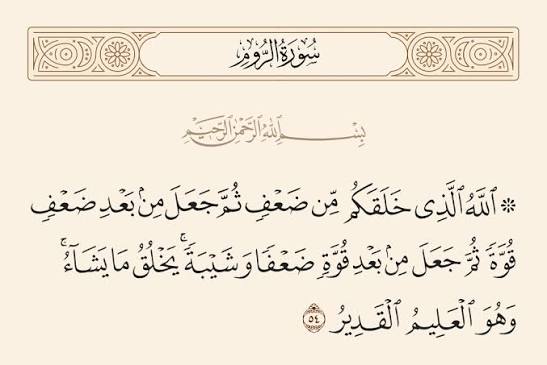 سُورَةُ الرُّومِ
بِسْمِ ٱللَّهِ ٱلرَّحْمَٰنِ ٱلرَّحِيمِ
۞ ٱللَّهُ ٱلَّذِى خَلَقَكُم مِّن ضَعْفٍ ثُمَّ جَعَلَ مِنۢ بَعْدِ ضَعْفٍ
قُوَّةً ثُمَّ جَعَلَ مِنۢ بَعْدِ قُوَّةٍ ضَعْفًا وَشَيْبَةً ۚ يَخْلُقُ مَا يَشَآءُ ۖ
وَهُوَ ٱلْعَلِيمُ ٱلْقَدِيرُ ٥٤